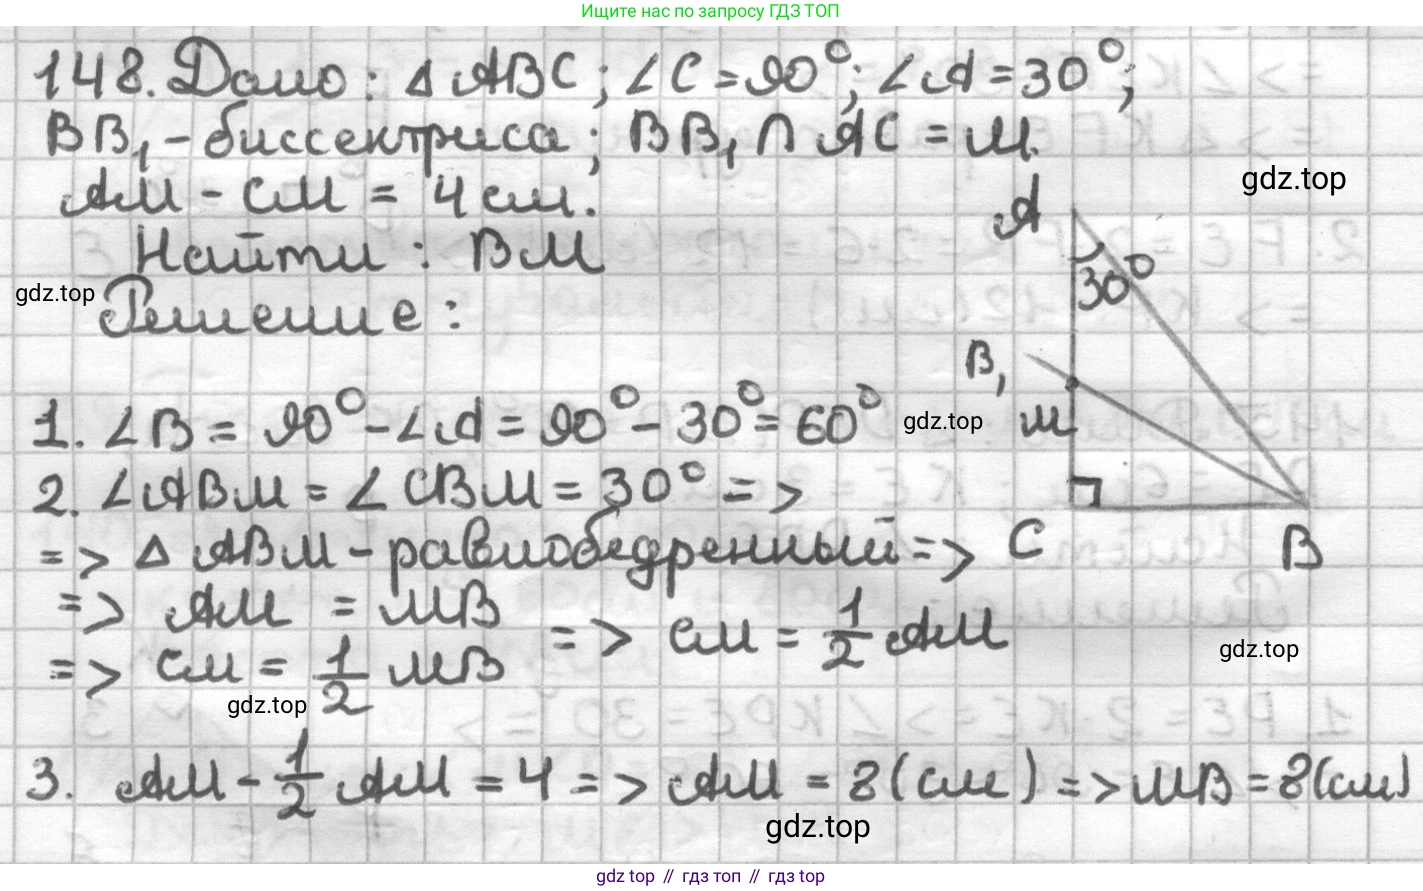 Ищите нас по запросу ГДЗ ТОП
148. Дано: Δ ABC; ∠C = 90°; ∠A = 30°;
BB₁ - биссектриса; BB₁ ∩ AC = M.
AM - CM = 4 см.
Найти: BM
Решение:
gdz.top
gdz.top
A
30°
B₁
M
C
B
1. ∠B = 90° - ∠A = 90° - 30° = 60°
gdz.top
2. ∠ABM = ∠CBM = 30° =>
=> Δ ABM - равнобедренный =>
=> AM = MB
=> CM = 1/2 MB
=> CM = 1/2 AM
gdz.top
gdz.top
3. AM - 1/2 AM = 4 => AM = 8 (см) => MB = 8 (см)
gdz.top
gdz top // гдз топ // гдз top